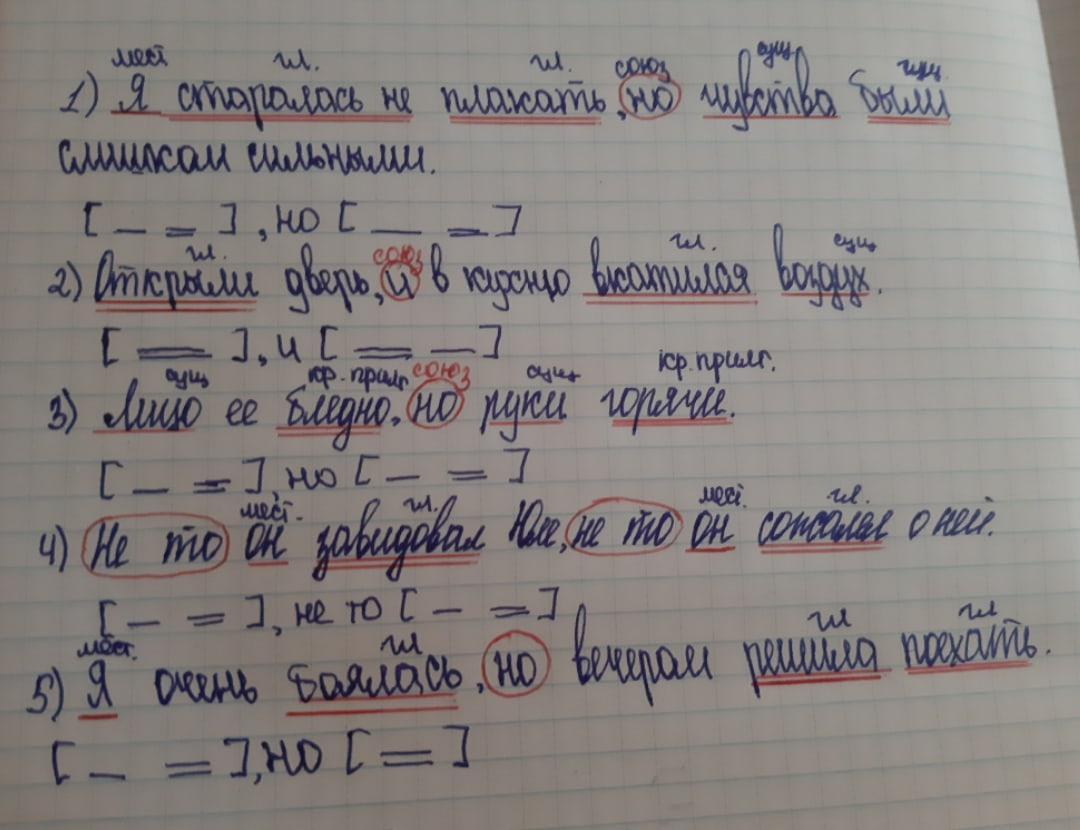 мест гл. гл. союз сущ
1) Я старалась не плакать, но чувства были
слишком сильными.
[ _ = ], но [ _ = ]
гл. союз гл. сущ
2) Открыли дверь, и в кухню вкатился воздух.
[ = ], и [ = _ ]
сущ кр. прилг. союз сущ кр. прилг.
3) Лицо ее бледно, но руки горячи.
[ _ = ], но [ _ = ]
мест. гл. мест. гл.
4) Не то он завидовал Юле, не то он сожалел о ней.
[ _ = ], не то [ _ = ]
мест. гл гл гл
5) Я очень боялась, но вечером решила поехать.
[ _ = ], но [ = ]